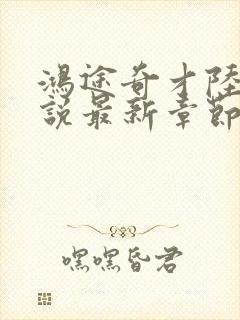 鴻途奇才陸
說最新章節
嘿嘿昏君